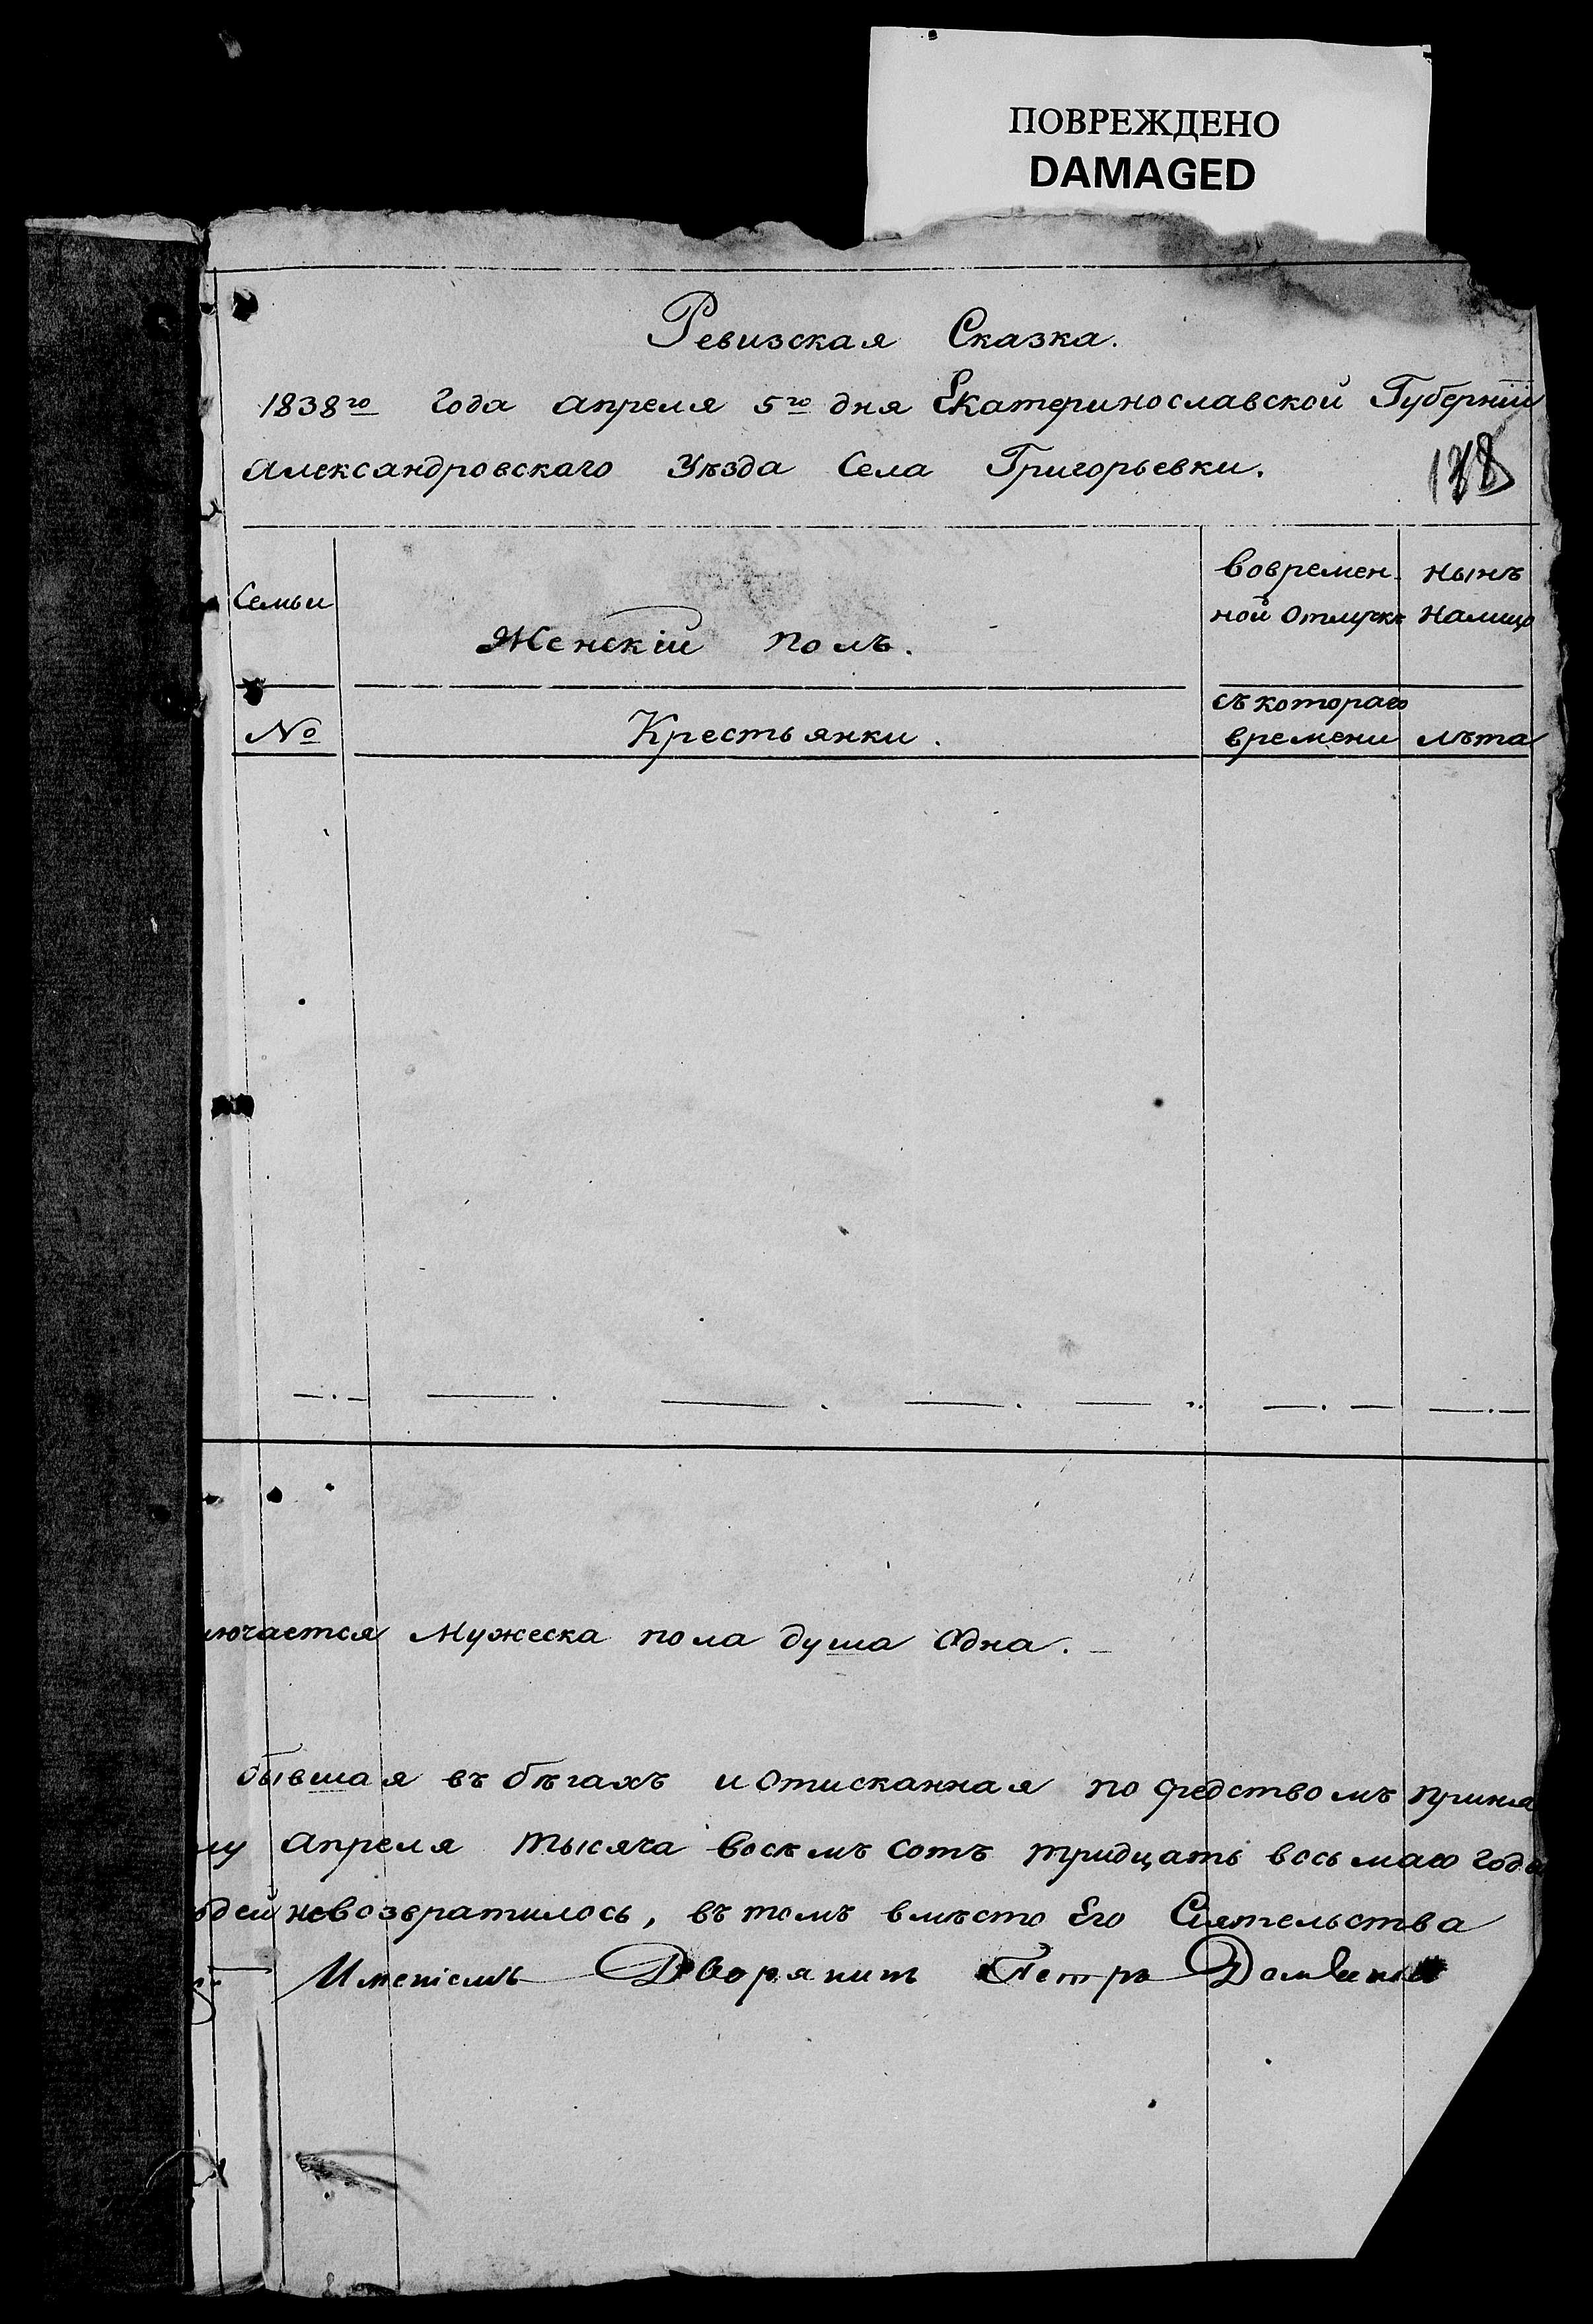 ПОВРЕЖДЕНО
DAMAGED
Ревизская Сказка.
1838го Года апреля 5го дня Екатеринославской Губерніи
Александровскаго Уѣзда Села Григорьевки.
178
Семьи
Женскій полъ.
Вовремен-
ной отлучкѣ
нынѣ
налицо
№
Крестьянки.
съ котораго
времени
лѣта
лючается Мужеска пола душа одна.
бывшая въ бѣгахъ и отисканная посредствомъ приня
му апреля тысяча восемъ сотъ тридцать восьмаго года
юдей невозвратилось, въ томъ вмѣсто Его Сіятельства
Имѣніемъ Дворянинъ Петръ